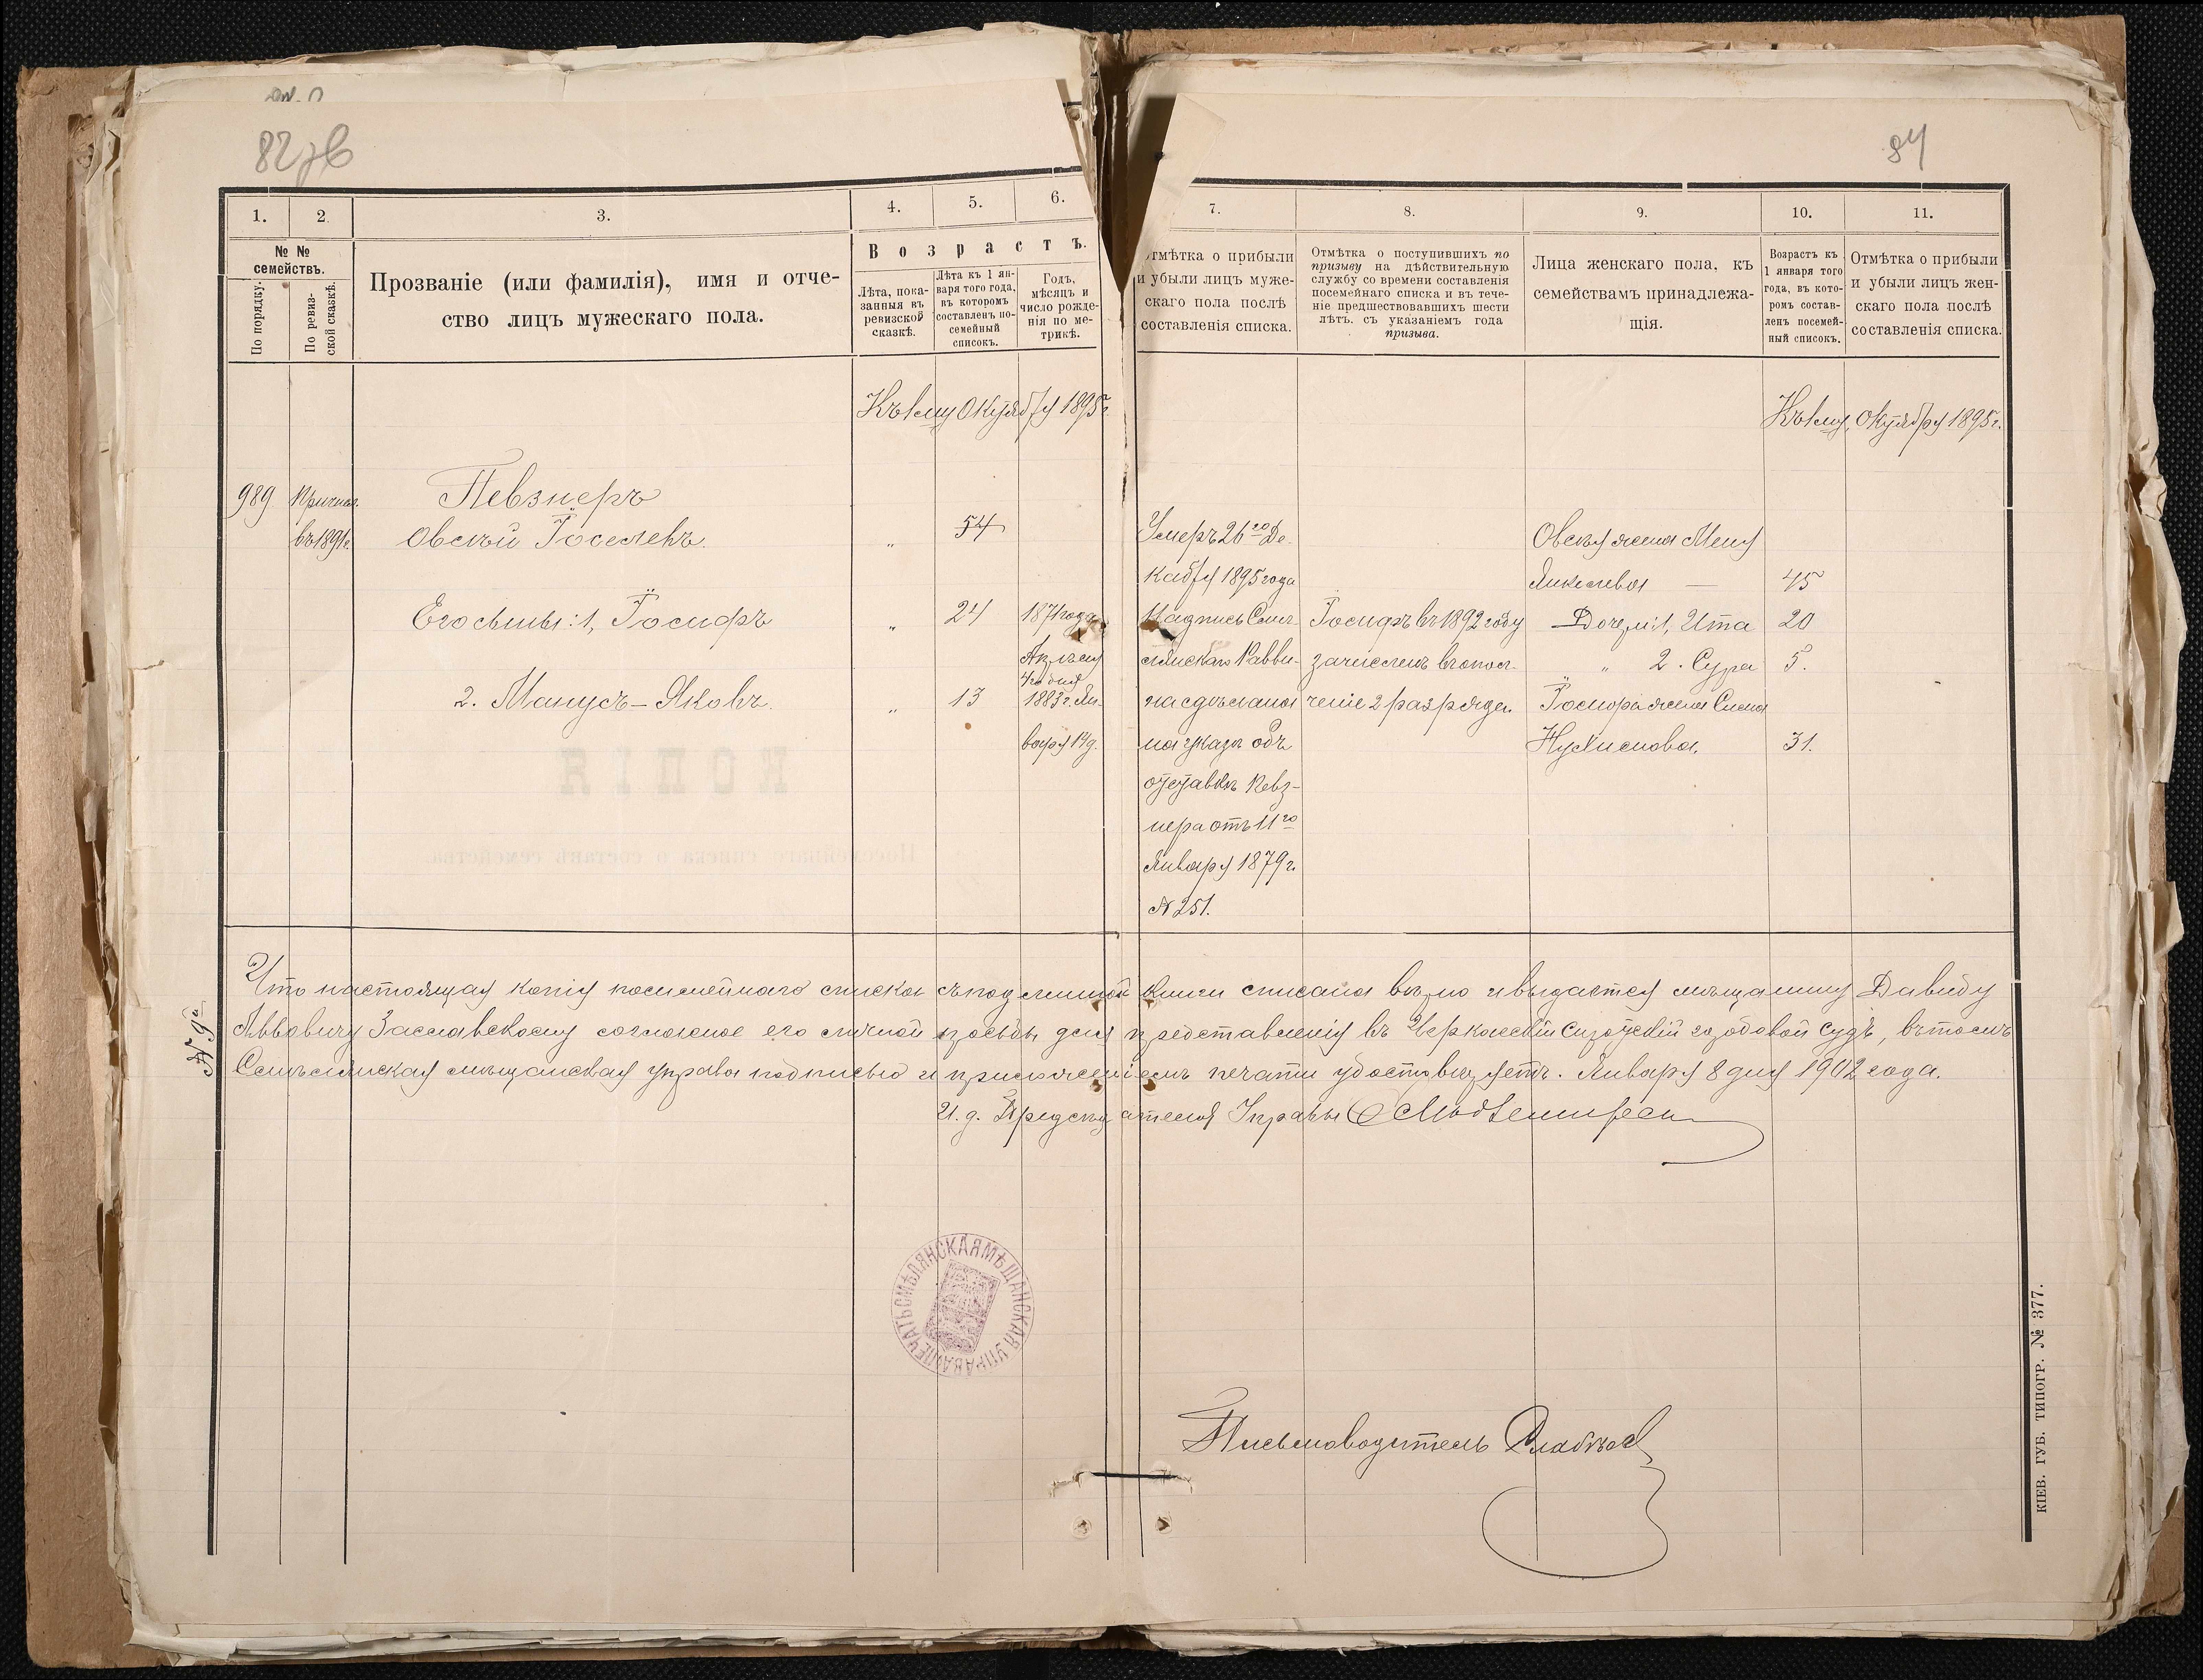 84
1. 2. 3. 4. 5. 6. 7. 8. 9. 10. 11.
№ №
семействъ.
По порядку.
По ревиз-
ской сказкѣ.
Прозваніе (или фамилія), имя и отче-
ство лицъ мужескаго пола.
Возрастъ.
Лѣта, пока-
занныя въ
ревизской
сказкѣ.
Лѣта къ 1 ян-
варя того года,
въ которомъ
составленъ по-
семейный
списокъ.
Годъ,
мѣсяцъ и
число рожде-
нія по ме-
трикѣ.
отмѣтка о прибыли
и убыли лицъ муже-
скаго пола послѣ
составленія списка.
Отмѣтка о поступившихъ по
призыву на дѣйствительную
службу со времени составленія
посемейнаго списка и въ тече-
ніе предшествовавшихъ шести
лѣтъ, съ указаніемъ года
призыва.
Лица женскаго пола, къ
семействамъ принадлежа-
щія.
Возрастъ къ
1 января того
года, въ кото-
ромъ состав-
ленъ посемей-
ный списокъ.
Отмѣтка о прибыли
и убыли лицъ жен-
скаго пола послѣ
составленія списка.
Къ 1му Октября 1895 г.
Къ 1му Октября 1895 г.
989
Причис.
въ 1891 г.
Певзнеръ
Овсѣй Іоселевъ.
„
54
Его сыны: 1, Іосифъ
„
24
1871 года
Апрѣля
4го дня
2. Манусъ-Яковъ.
„
13
1883 г. Ян-
варя 14 д.
Умеръ 26го Де-
кабря 1895 года
Надпись Смѣ-
лянскаго Равви-
на сдѣлана
на указѣ объ
отставкѣ Певз-
нера отъ 11го
Января 1879 г.
№ 251.
Іосифъ въ 1892 году
зачисленъ въ опол-
ченіе 2 разряда.
Овсѣя жена Меня
Янкелева — 45
Дочери: 1, Ита 20
„ 2. Сура 5.
Іосифа жена Сима
Нухимова. 31.
КОПІЯ
Посемейнаго списка о составѣ семейства
№ 9й
Что настоящая копія посемейнаго списка съ подлинной книги списана вѣрно и выдается мѣщанину Давиду
Аввовичу Заславскому согласно его личной просьбы для представленія въ Черкасскій Сиротскій городовой судъ, въ томъ
Смѣлянская мѣщанская управа подписью и приложеніемъ печати удостовѣряетъ. Января 8 дня 1902 года.
И. д. Предсѣдателя Управы
ПЕЧАТЬ СМѢЛЯНСКАЯ МѢЩАНСКАЯ УПРАВА
Письмоводитель
КІЕВ. ГУБ. ТИПОГР. № 377.